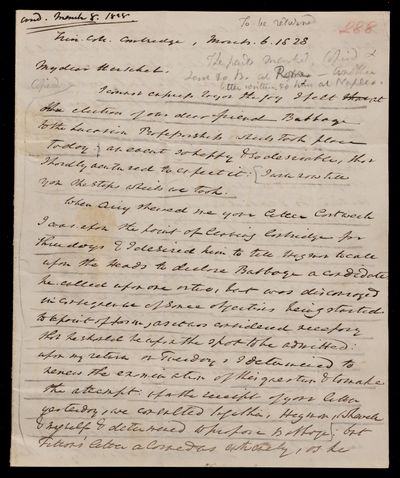 cond. March 8. 1828
To be returned
288
Trin. Coll. Cambridge, March. 6. 1828
The parts marked, copied &
sent to B. at Rome another
letter written to him at Naples.
My dear Herschel.
Copied
I cannot express to you the joy I felt at
the election of our dear friend Babbage
to the Lucasian Professorship which took place
today: an event so happy & so desirable, that
I hardly ventured to expect it: I will now tell
you the steps which we took.
When Airy shewed me your letter last week
I was upon the point of leaving Cambridge for
three days & I desired him to tell Higman to call
upon the Heads to declare Babbage a candidate
he called upon one or two, but was discouraged
in consequence of some objections being started
to a point of form, as it was considered necessary
that he should be upon the spot to be admitted:
upon my return on Tuesday, I determined to
renew the examination of this question & to make
the attempt: upon the receipt of your letter
yesterday, we consulted together, Higman, Whewell
& myself & determined to propose Babbage: but
letter alarmed us extremely, as he